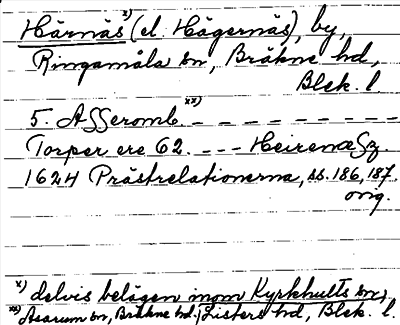 Härnäs x) (el. Hägernäs), by,
Ringamåla sn, Bräkne hd,
Blek. l
5. Asseromb. xx) – – – – – – – –
Torper ere 62. – – – Heirenæs
1624 Prästrelationerna, ss. 186, 187.
orig.
x) delvis belägen inom Kyrkhults sn,
xx) Asarum sn, Bräkne hd. Listers hd, Blek. l.